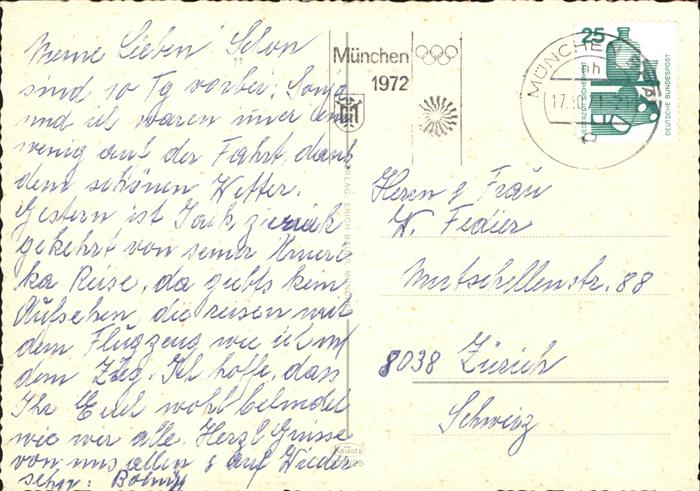 Meine Lieben! Schon
sind 10 Tg vorbei, Sonja
und ich waren nur ein
wenig auf der Fahrt, dank
dem schönen Wetter.
Gestern ist Jack zurück
gekehrt von seiner Ameri
ka Reise, da giebts kein
Aufsehen, die reisen mit
dem Flugzeug wie ich mit
dem Zug. Ich hoffe, dass
Ihr Euch wohl befindet
wie wir alle. Herzl Grüsse
von uns allen & auf Wieder
sehn:
München
1972
MÜNCHE
25
DEUTSCHE BUNDESPOST
JEDERZEIT SICHERHEIT
VERLAG ERICH
KRÜGER
Herrn & Frau
W. Fedier
Mutschellenstr. 88
8038 Zürich
Schweiz